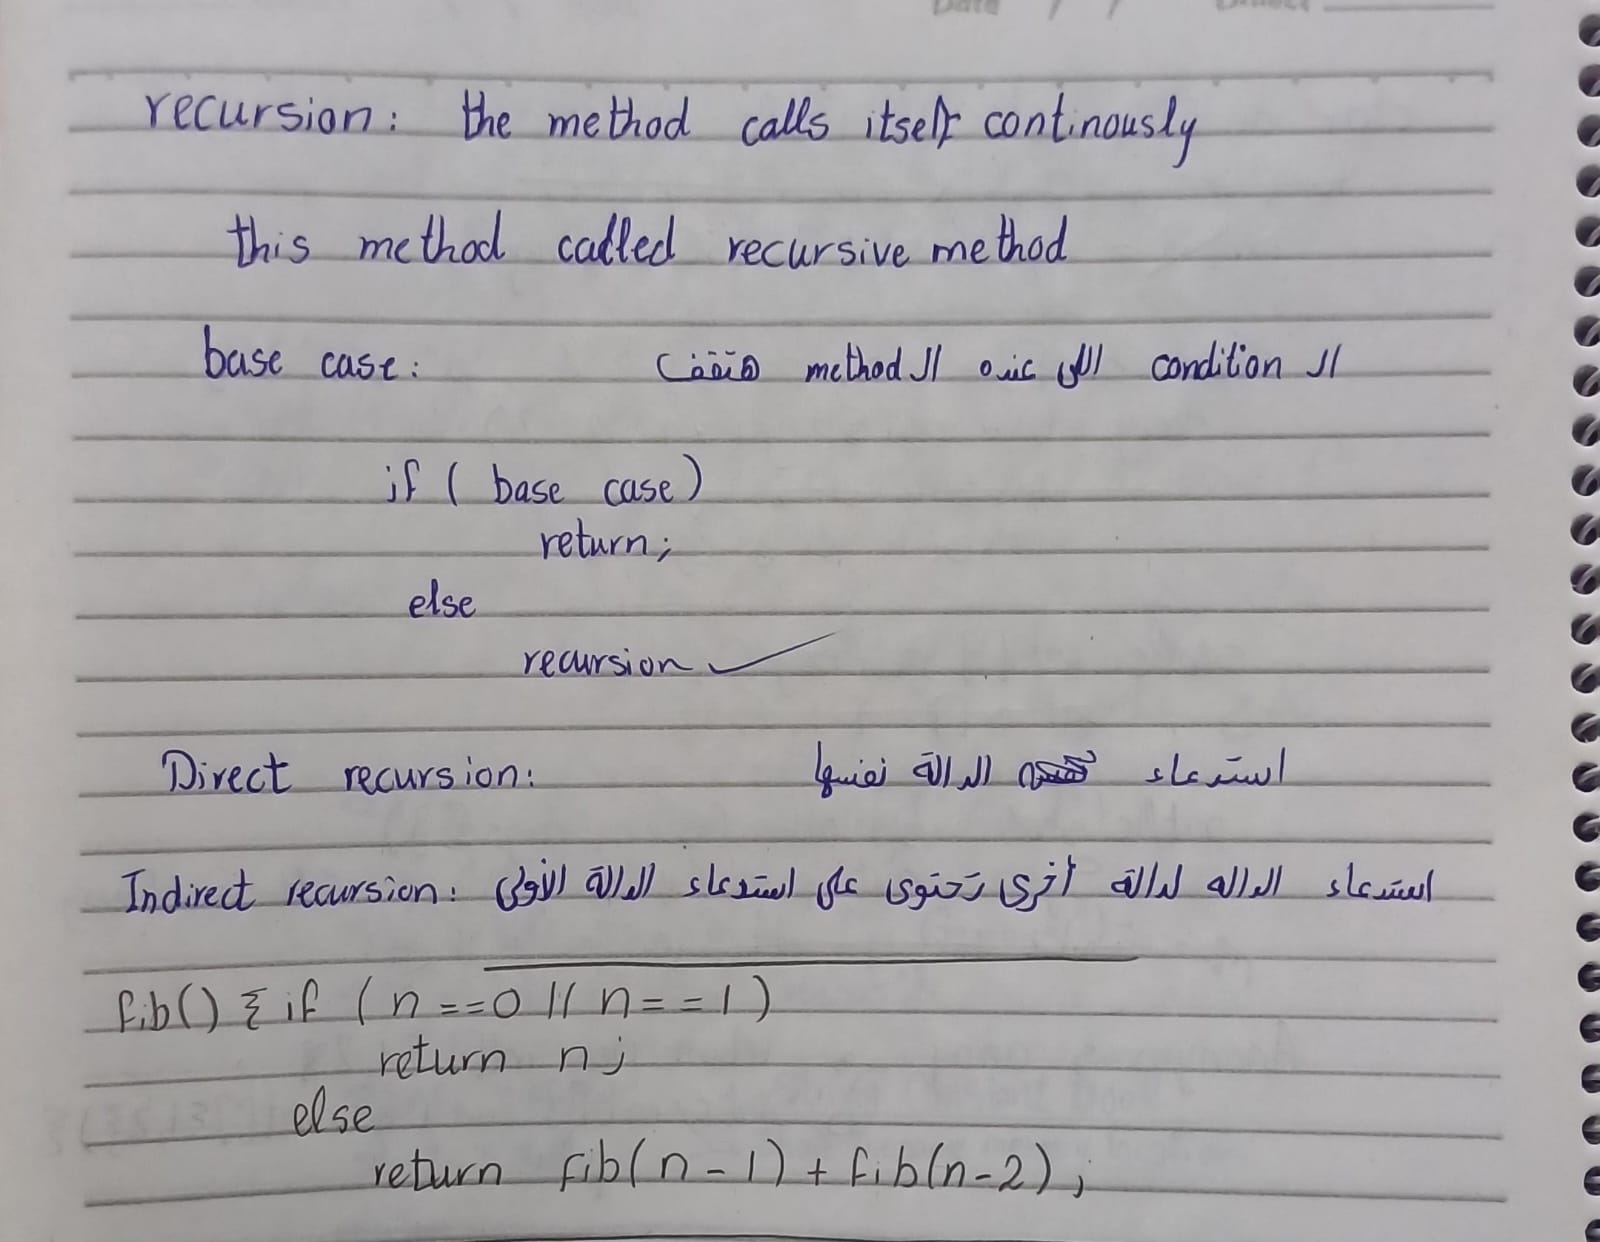 Date / /
recursion: the method calls itself continously
this method called recursive method
base case: ال condition اللى عنده ال method هتقف
if ( base case)
return;
else
recursion ✓
Direct recursion: استدعاء الدالة نفسها
Indirect recursion: استدعاء الداله لدالة أخرى تحتوى على استدعاء الدالة الأولى
fib() { if ( n ==0 || n==1 )
return n;
else
return fib(n-1)+fib(n-2);